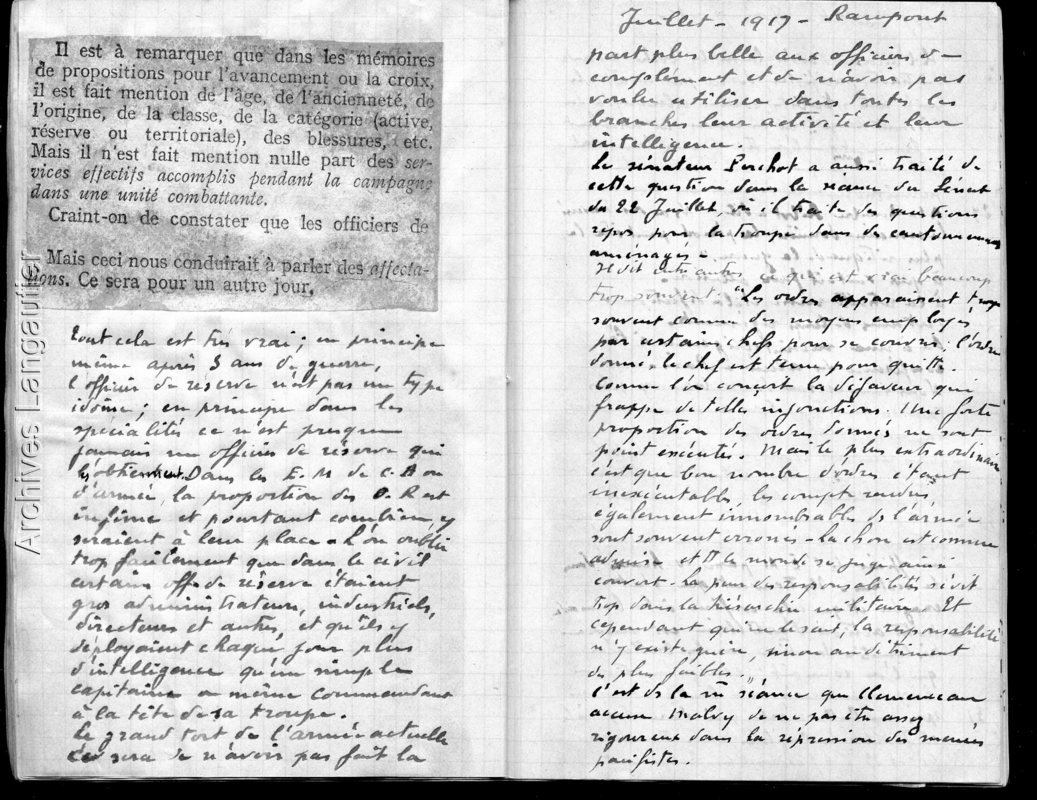 Il est à remarquer que dans les mémoires
de propositions pour l'avancement ou la croix,
il est fait mention de l'âge, de l'ancienneté, de
l'origine, de la classe, de la catégorie (active,
réserve ou territoriale), des blessures, etc.
Mais il n'est fait mention nulle part des ser-
vices effectifs accomplis pendant la campagne
dans une unité combattante.
Craint-on de constater que les officiers de
Mais ceci nous conduirait à parler des affecta-
tions. Ce sera pour un autre jour.
Tout cela est très vrai; en principe
même après 3 ans de guerre,
l'officier de réserve n'est pas un type
idoine; en principe dans les
spécialités ce n'est presque
jamais un officier de réserve qui
les obtiennent. Dans les E.M de C.A ou
d'armée, la proportion des O.R est
infime et pourtant combien y
seraient à leur place. L'on oublie
trop facilement que dans le civil
certains off. de réserve étaient
gros administrateurs, industriels,
directeurs et autres, et qu'ils y
déployaient chaque jour plus
d'intelligence qu'un simple
capitaine ou même commandant
à la tête de sa troupe.
Le grand tort de l'armée actuelle
ce sera de n'avoir pas fait la
Juillet - 1917 - Rampont
part plus belle aux officiers de
complément et de n'avoir pas
voulu utiliser dans toutes les
branches leur activité et leur
intelligence.
Le sénateur Perchot a aussi traité de
cette question dans la séance du Sénat
du 22 Juillet, où il traite des questions
repos pour la troupe dans des cantonnements
aménagés -
Il dit entre autres, ce qui est vrai beaucoup
trop souvent "Les ordres apparaissent trop
souvent comme des moyens employés
par certains chefs pour se couvrir; l'ordre
donné, le chef est tenu pour quitte.
Comme l'on conçoit la défaveur qui
frappe de telles injonctions. Une forte
proportion des ordres donnés ne sont
point exécutés. Mais le plus extraordinaire
c'est que bon nombre d'ordres étant
inexécutables, les compte rendus,
également innombrables de l'armée
sont souvent erronés - La chose est comme
admise et Tt le monde se juge ainsi
couvert - La peur des responsabilités sévit
trop dans la hiérarchie militaire. Et
cependant qui ne le sait, la responsabilité
n'y existe guère, sinon au détriment
des plus faibles."
C'est ds la m séance que Clemenceau
accusa Malvy de ne pas être assez
rigoureux dans la répression des menées
pacifistes.
Archives Langautier